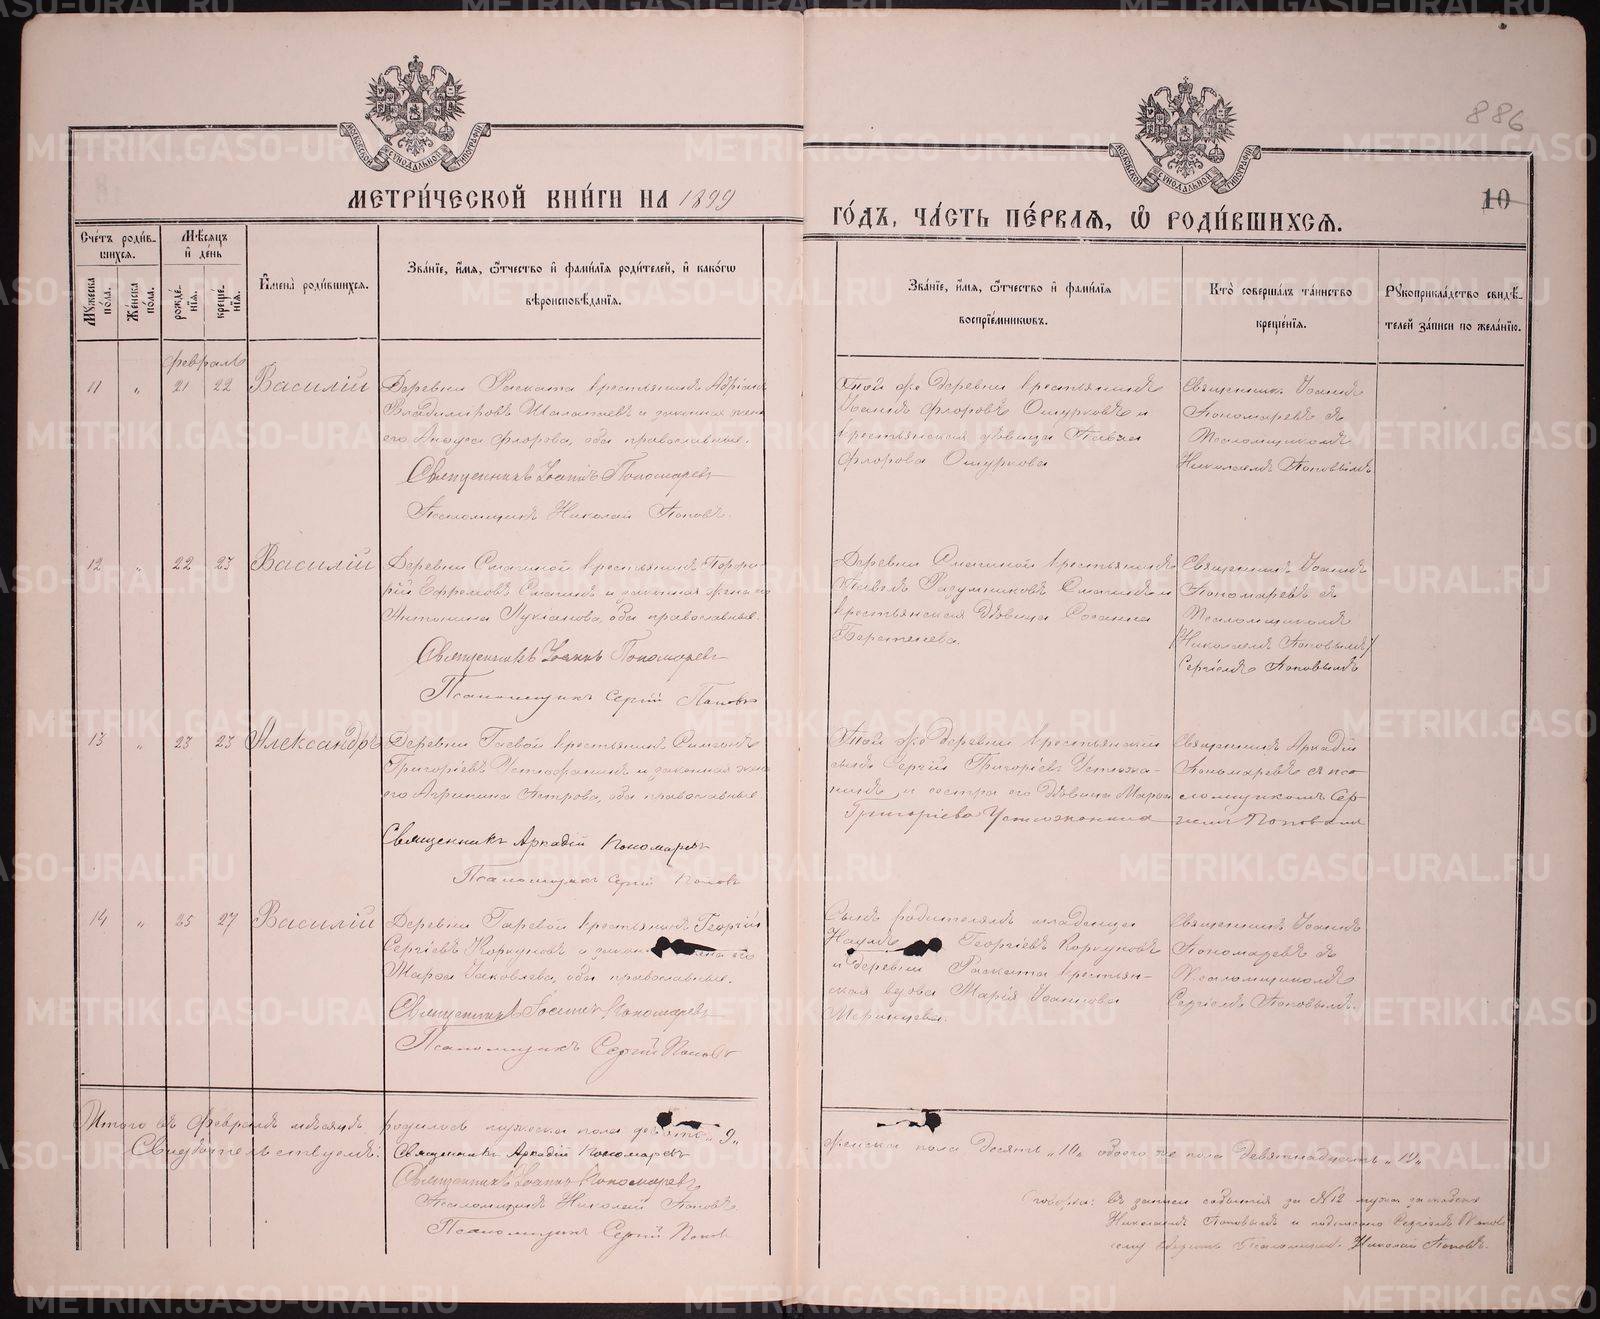 886
МОСКОВСКОЙ СѴНОДАЛЬНОЙ ТИПОГРАФІИ
МОСКОВСКОЙ СѴНОДАЛЬНОЙ ТИПОГРАФІИ
МЕТРИ́ЧЕСКОЙ КНИ́ГИ НА 1899
ГО́ДЪ, ЧА́СТЬ ПЕ́РВАЯ, Ѡ РОДИ́ВШИХСЯ.
10
Сче́тъ роди́в-
шихся.
Му́жеска
по́ла.
Же́нска
по́ла.
Мѣ́сяцъ
и҆ де́нь
рожде́-
нїя.
креще́-
нїя.
И҆мена̀ роди́вшихся.
Зва́нїе, и҆́мя, ѻ҆́тчество и҆ фами́лїя роди́телей, и҆ како́гѡ
вѣроисповѣ́данїя.
Зва́нїе, и҆́мя, ѻ҆́тчество и҆ фами́лїя
воспрїе́мникѡвъ.
Кто̀ соверша́лъ та́инство
креще́нїя.
Рꙋкоприкла́дство свидѣ́-
телей за́писи по жела́нїю.
Февраль
11 " 21 22 Василій
Деревни Раската крестьянинъ Адріанъ
Владиміровъ и законная жена
его Флорова, оба православные.
Священникъ Іоаннъ Пономаревъ
Псаломщикъ Николай Поповъ.
Той же деревни крестьянинъ
Іоаннъ Флоровъ Ошурковъ и
крестьянская дѣвица
Флорова Ошуркова
Священникъ Іоаннъ
Пономаревъ съ
Псаломщикомъ
Николаемъ Поповымъ
12 " 22 23 Василій
Деревни Смагиной крестьянинъ Порфи-
рій Ефремовъ Смагинъ и законная жена его
Антонина Лукіанова, оба православные.
Священникъ Іоаннъ Пономаревъ
Псаломщикъ Сергій Поповъ
Деревни Смагиной крестьянинъ
Павелъ Разумниковъ Смагинъ и
крестьянская дѣвица
Берстенева.
Священникъ Іоаннъ
Пономаревъ съ
Псаломщикомъ
/Николаемъ Поповымъ/
Сергіемъ Поповымъ
13 " 23 23 Александръ
Деревни Гаевой крестьянинъ Симеонъ
Григоріевъ и законная жена
его Агрипина Петрова, оба православные
Священникъ Аркадій Пономаревъ
Псаломщикъ Сергій Поповъ
Той же деревни крестьянскій
сынъ Сергій Григоріевъ Устюжа-
нинъ и сестра его дѣвица Марѳа
Григоріева Устюжанина
Священникъ Аркадій
Пономаревъ съ пса-
ломщикомъ Сер-
гіемъ Поповымъ
14 " 25 27 Василій
Деревни Гаревой крестьянинъ Георгій
Сергіевъ Коркуновъ и закон жена его
Марѳа Іаковлева, оба православные.
Священникъ Іоаннъ Пономаревъ
Псаломщикъ Сергій Поповъ
Сынъ родителямъ младенца
Наумъ Георгіевъ Коркуновъ
и деревни Раската крестьян-
ская вдова Марія Іоаннова
Священникъ Іоаннъ
Пономаревъ съ
Псаломщикомъ
Сергіемъ Поповымъ.
Итого въ Февралѣ мѣсяцѣ родилось мужеска пола девять „9„
женска пола десять „10„ обоего же пола девятнадцать „19„
Свидѣтельствуемъ: Священникъ Аркадій Пономаревъ
Священникъ Іоаннъ Пономаревъ
Псаломщикъ Николай Поповъ
Псаломщикъ Сергій Попов
въ записи событія за №12 мужа
Николаемъ Поповымъ и подписано Сергіемъ
Псаломщикъ Николай Поповъ.
METRIKI.GASO-URAL.RU